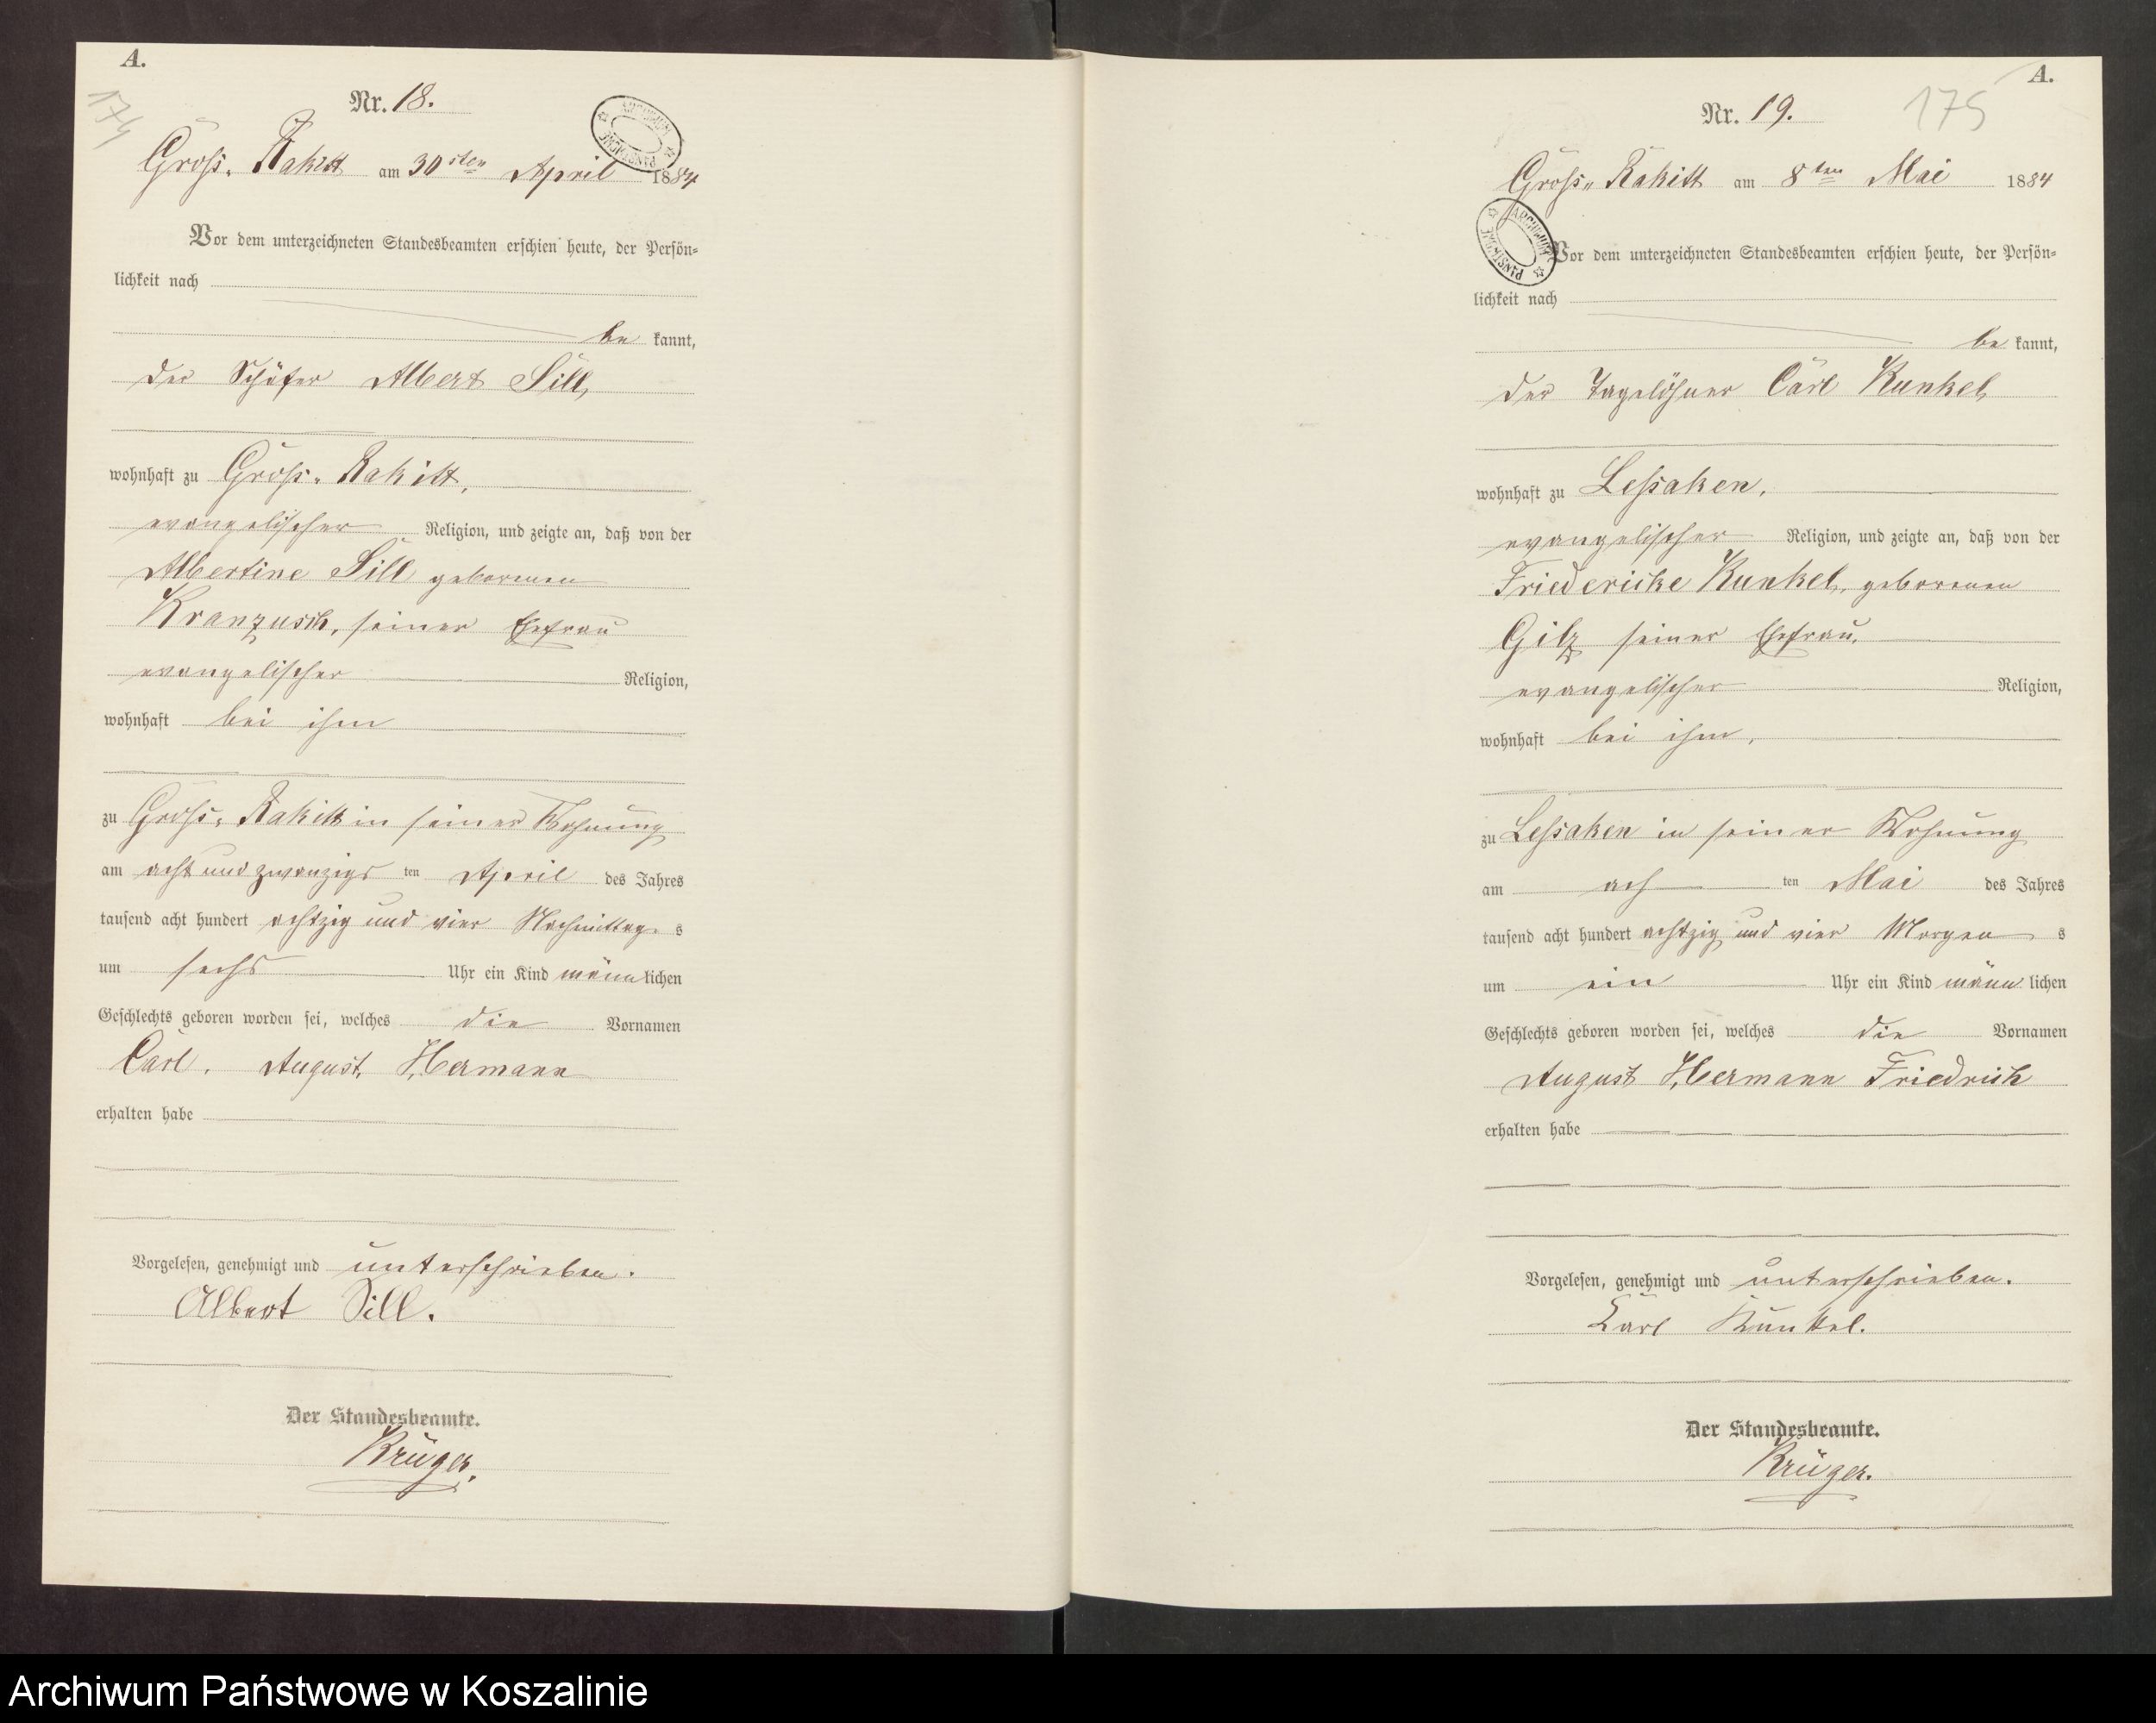 A.
174
Nr. 18.
Gross-Rakitt am 30sten April 1884
Vor dem unterzeichneten Standesbeamten erschien heute, der Persön=
lichkeit nach
be kannt,
der Schäfer Albert Sill,
wohnhaft zu Gross-Rakitt,
evangelischer Religion, und zeigte an, daß von der
Albertine Sill geborenen
Kranzusch, seiner Ehefrau
evangelischer Religion,
wohnhaft bei ihm
zu Gross-Rakitt in seiner Wohnung
am acht und zwanzigs ten April des Jahres
tausend acht hundert achtzig und vier Nachmittag s
um sechs Uhr ein Kind männ lichen
Geschlechts geboren worden sei, welches die Vornamen
Carl, August, Hermann
erhalten habe
Vorgelesen, genehmigt und unterschrieben.
Albert Sill.
Der Standesbeamte.
Krüger.
A.
175
Nr. 19.
Gross-Rakitt am 8ten Mai 1884
ARCHIWUM PAŃSTWOWE
Vor dem unterzeichneten Standesbeamten erschien heute, der Persön=
lichkeit nach
be kannt,
der Tagelöhner Carl Kunkel,
wohnhaft zu Lessaken,
evangelischer Religion, und zeigte an, daß von der
Friedericke Kunkel, geborenen
Gilz seiner Ehefrau,
evangelischer Religion,
wohnhaft bei ihm,
zu Lessaken in seiner Wohnung
am ach ten Mai des Jahres
tausend acht hundert achtzig und vier Morgen s
um ein Uhr ein Kind männ lichen
Geschlechts geboren worden sei, welches die Vornamen
August Hermann Friedrich
erhalten habe
Vorgelesen, genehmigt und unterschrieben.
Karl Kunkel.
Der Standesbeamte.
Krüger.
Archiwum Państwowe w Koszalinie